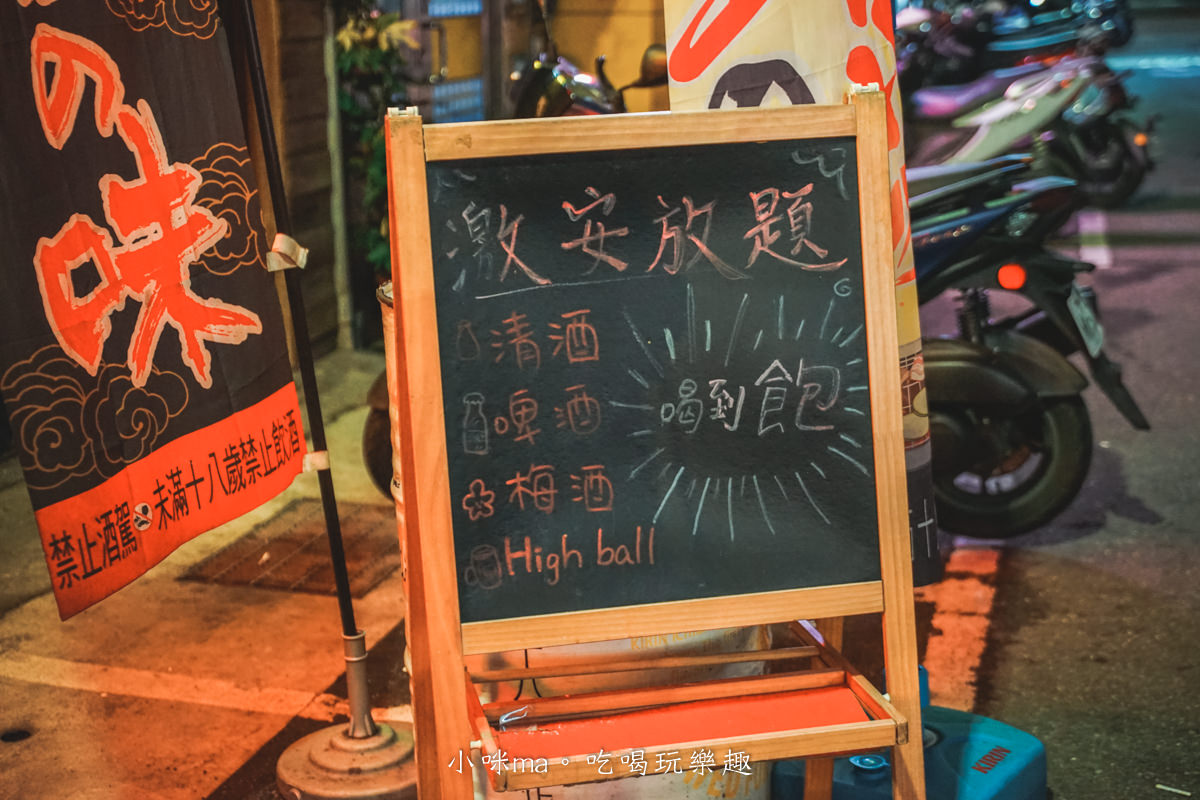 の味
禁止酒駕 未滿十八歲禁止飲酒
激安放題
清酒
啤酒
梅酒
High ball
喝到飽
KIRIN
小咪ma。吃喝玩樂趣